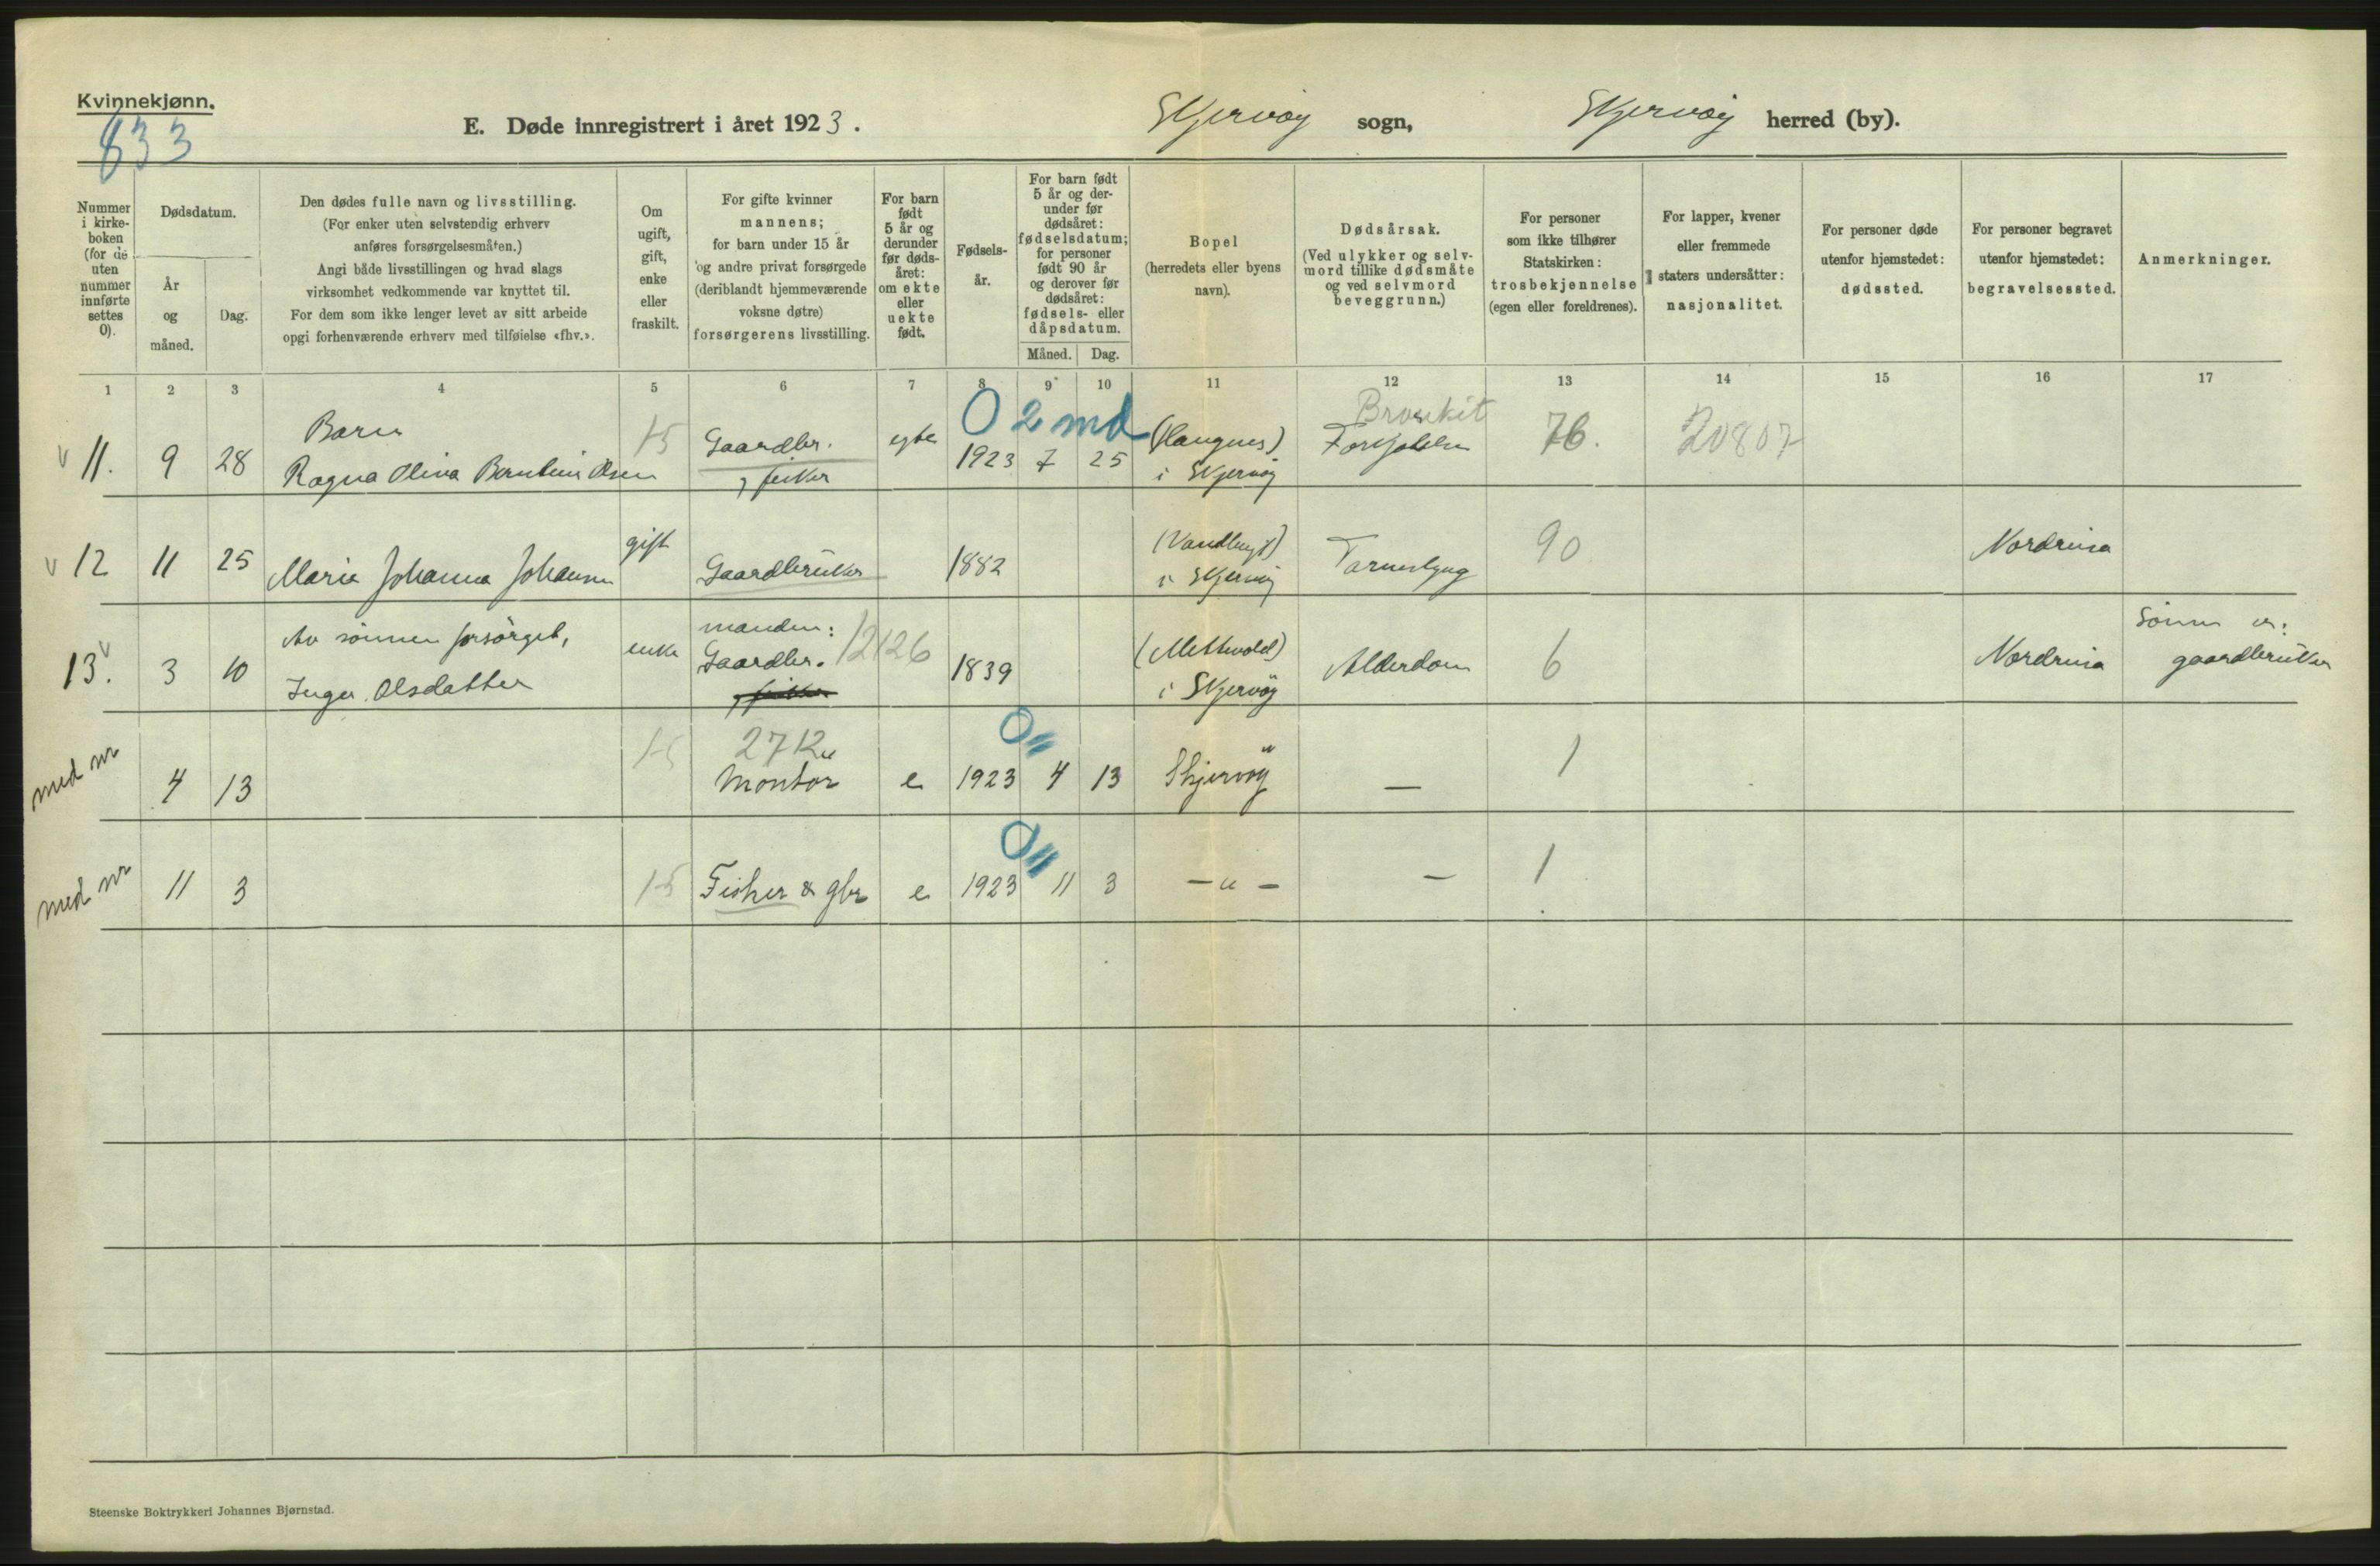 Kvinnekjønn.
833
E. Døde innregistrert i året 1923.
Skjervøy sogn,
Skjervøy herred (by).
Nummer i kirkeboken (for de uten nummer innførte settes 0).
Dødsdatum.
År og måned.
Dag.
Den dødes fulle navn og livsstilling.
(For enker uten selvstendig erhverv
anføres forsørgelsesmåten.)
Angi både livsstillingen og hvad slags
virksomhet vedkommende var knyttet til.
For dem som ikke lenger levet av sitt arbeide
opgi forhenværende erhverv med tilføielse «fhv.».
Om
ugift,
gift,
enke
eller
fraskilt.
For gifte kvinner
mannens;
for barn under 15 år
og andre privat forsørgede
(deriblandt hjemmeværende
voksne døtre)
forsørgerens livsstilling.
For barn
født
5 år og
derunder
før døds-
året:
om ekte
eller
uekte
født.
Fødsels-
år.
For barn født
5 år og der-
under før
dødsåret:
fødselsdatum;
for personer
født 90 år
og derover før
dødsåret:
fødsels- eller
dåpsdatum.
Måned. Dag.
Bopel
(herredets eller byens
navn).
Dødsårsak.
(Ved ulykker og selv-
mord tillike dødsmåte
og ved selvmord
beveggrunn.)
For personer
som ikke tilhører
Statskirken:
trosbekjennelse
(egen eller foreldrenes).
For lapper, kvener
eller fremmede
staters undersåtter:
nasjonalitet.
For personer døde
utenfor hjemstedet:
dødssted.
For personer begravet
utenfor hjemstedet:
begravelsessted.
Anmerkninger.
1 2 3 4 5 6 7 8 9 10 11 12 13 14 15 16 17
0 2 md
Bronkit
Barn 15 Gaardbr. egte (Haugnes) 76. 20807
v 11. 9 28 Ragna Olina Berntine Olsen , fisker 1923 7 25 i Skjervøy
gift (Vandbugt) 90 Nordreisa
v 12 11 25 Maria Johanna Johansen Gaardbruker 1882 i Skjervøy
Av sönnen forsörget, enke manden: 12126 (Mettevold) Sönnen er:
13. v 3 10 Inger Olsdatter Gaardbr. 1839 i Skjervöy Alderdom 6 Nordreisa gaardbruker
15 2712 0
med nr 4 13 Montör e 1923 4 13 Skjervöy — 1
0
med nr 11 3 15 Fisker & gbr e 1923 11 3 — " — — 1
Steenske Boktrykkeri Johannes Bjørnstad.